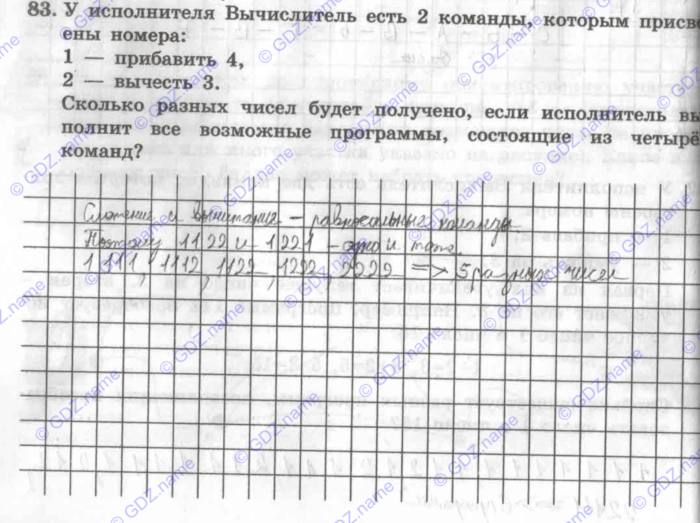 83. У исполнителя Вычислитель есть 2 команды, которым присв
ены номера:
1 — прибавить 4,
2 — вычесть 3.
Сколько разных чисел будет получено, если исполнитель вы
полнит все возможные программы, состоящие из четырё
команд?
Сложение и вычитания – равносильные команды.
Поэтому 1122 и 1221 – одно и тоже.
1111, 1112, 1122, 1222, 2222 => 5 разных чисел
© GDZ.name